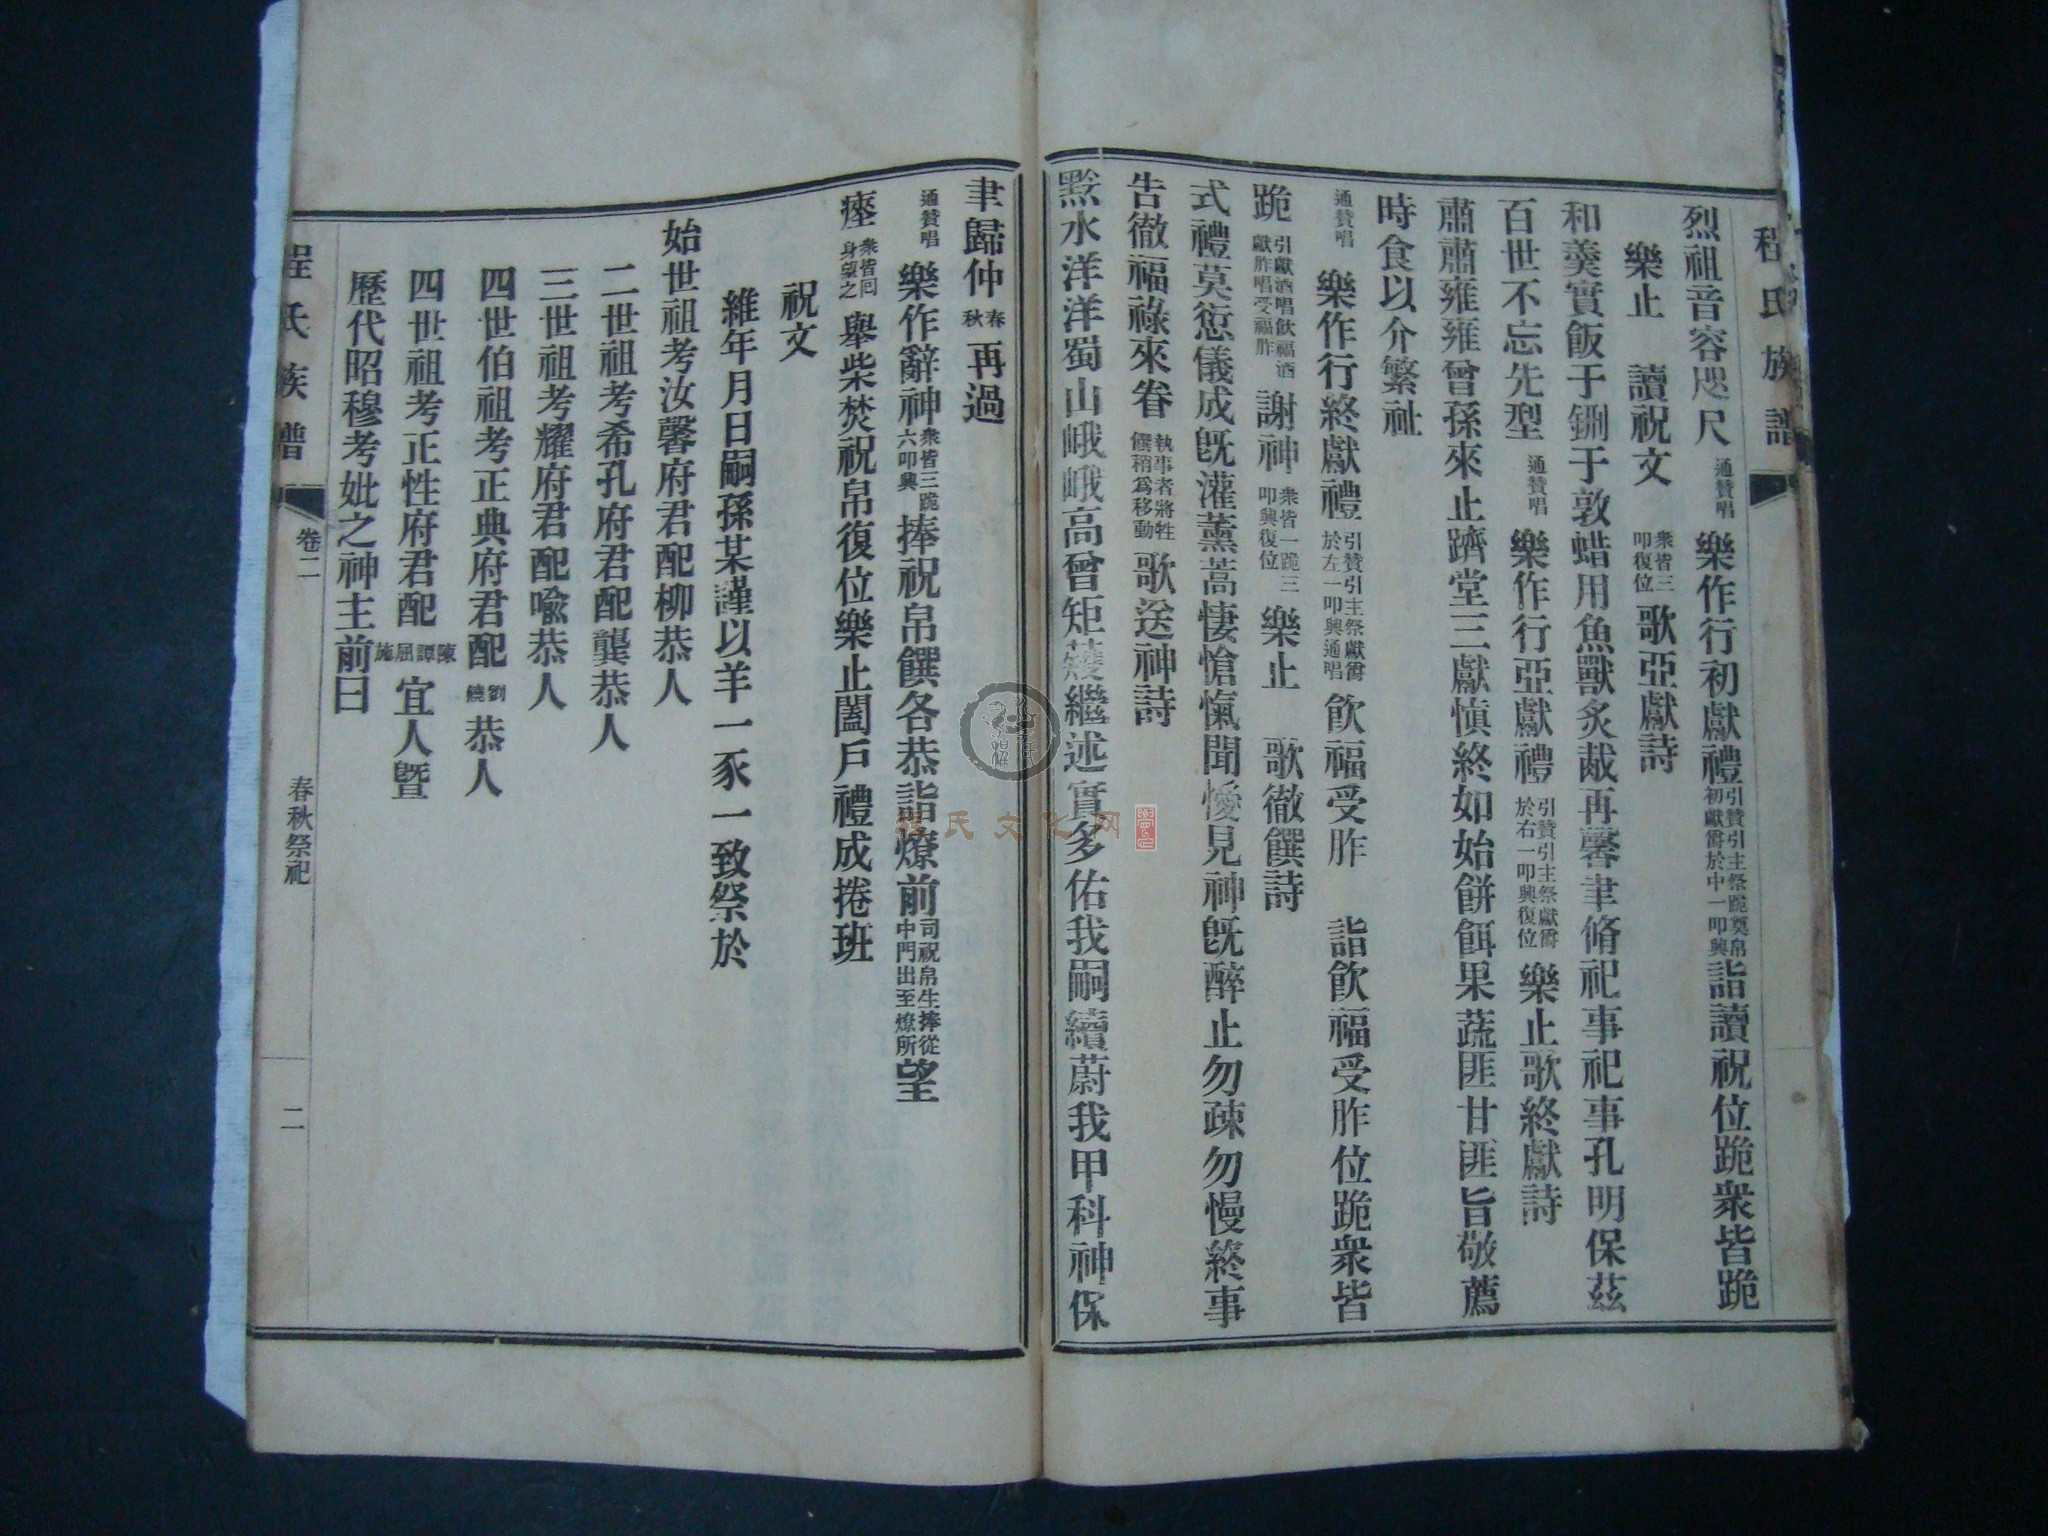 程氏族譜
烈祖音容咫尺 通贊唱 樂作行初獻禮 引贊引主祭跪奠帛初獻爵於中一叩興 詣讀祝位跪衆皆跪
樂止 讀祝文 衆皆三叩復位 歌亞獻詩
和羹實飯于鉶于敦蜡用魚獸炙胾再馨聿脩祀事祀事孔明保茲
百世不忘先型 通贊唱 樂作行亞獻禮 引贊引主祭獻爵於右一叩興復位 樂止歌終獻詩
肅肅雍雍曾孫來止躋堂三獻愼終如始餅餌果蔬匪甘匪旨敬薦
時食以介繁祉
通贊唱 樂作行終獻禮 引贊引主祭獻爵於左一叩興通唱 飲福受胙 詣飲福受胙位跪衆皆
跪 引獻酒唱飲福酒獻胙唱受福胙 謝神 衆皆一跪三叩興復位 樂止 歌徹饌詩
式禮莫愆儀成旣灌薰蒿悽愴愾聞僾見神旣醉止勿疎勿慢終事
告徹福祿來眷 執事者將牲饌稍爲移動 歌送神詩
黙水洋洋蜀山峨峨高曾矩矱繼述實多佑我嗣續蔚我甲科神保
聿歸仲 春秋 再過
通贊唱 樂作辭神 衆皆三跪六叩興 捧祝帛饌各恭詣燎前 司祝帛生捧從中門出至燎所 望
瘞 衆皆囘身望之 舉柴焚祝帛復位樂止闔戶禮成捲班
祝文
維年月日嗣孫某謹以羊一豕一致祭於
始世祖考汝馨府君配柳恭人
二世祖考希孔府君配龔恭人
三世祖考耀府君配喩恭人
四世伯祖考正典府君配 劉饒 恭人
四世祖考正性府君配 陳譚屈施 宜人曁
歷代昭穆考妣之神主前曰
程氏族譜 卷二 春秋祭祀 二
程氏文化网